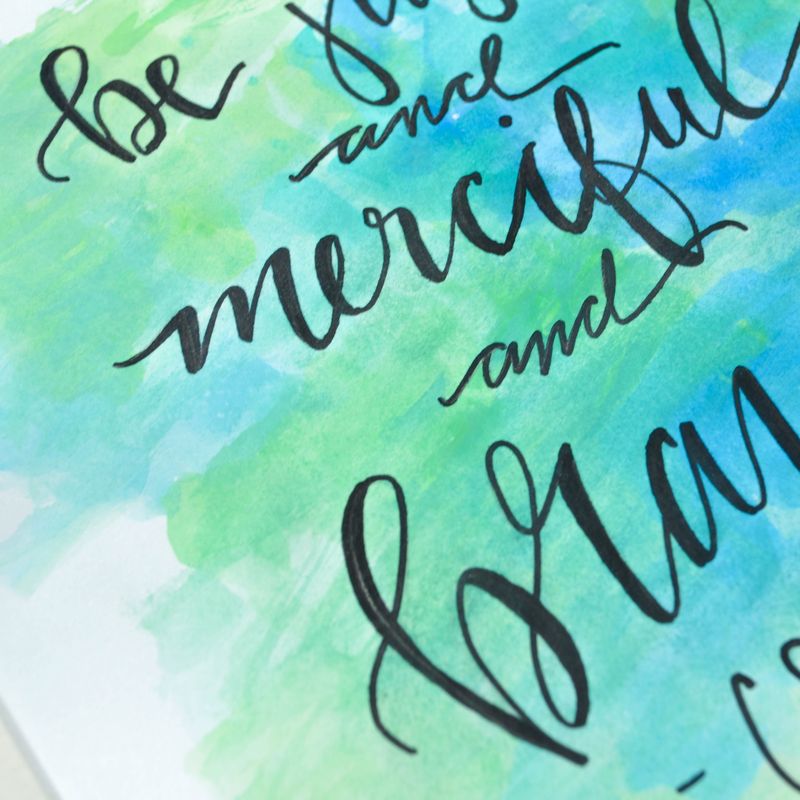 be
and
merciful
and
bra